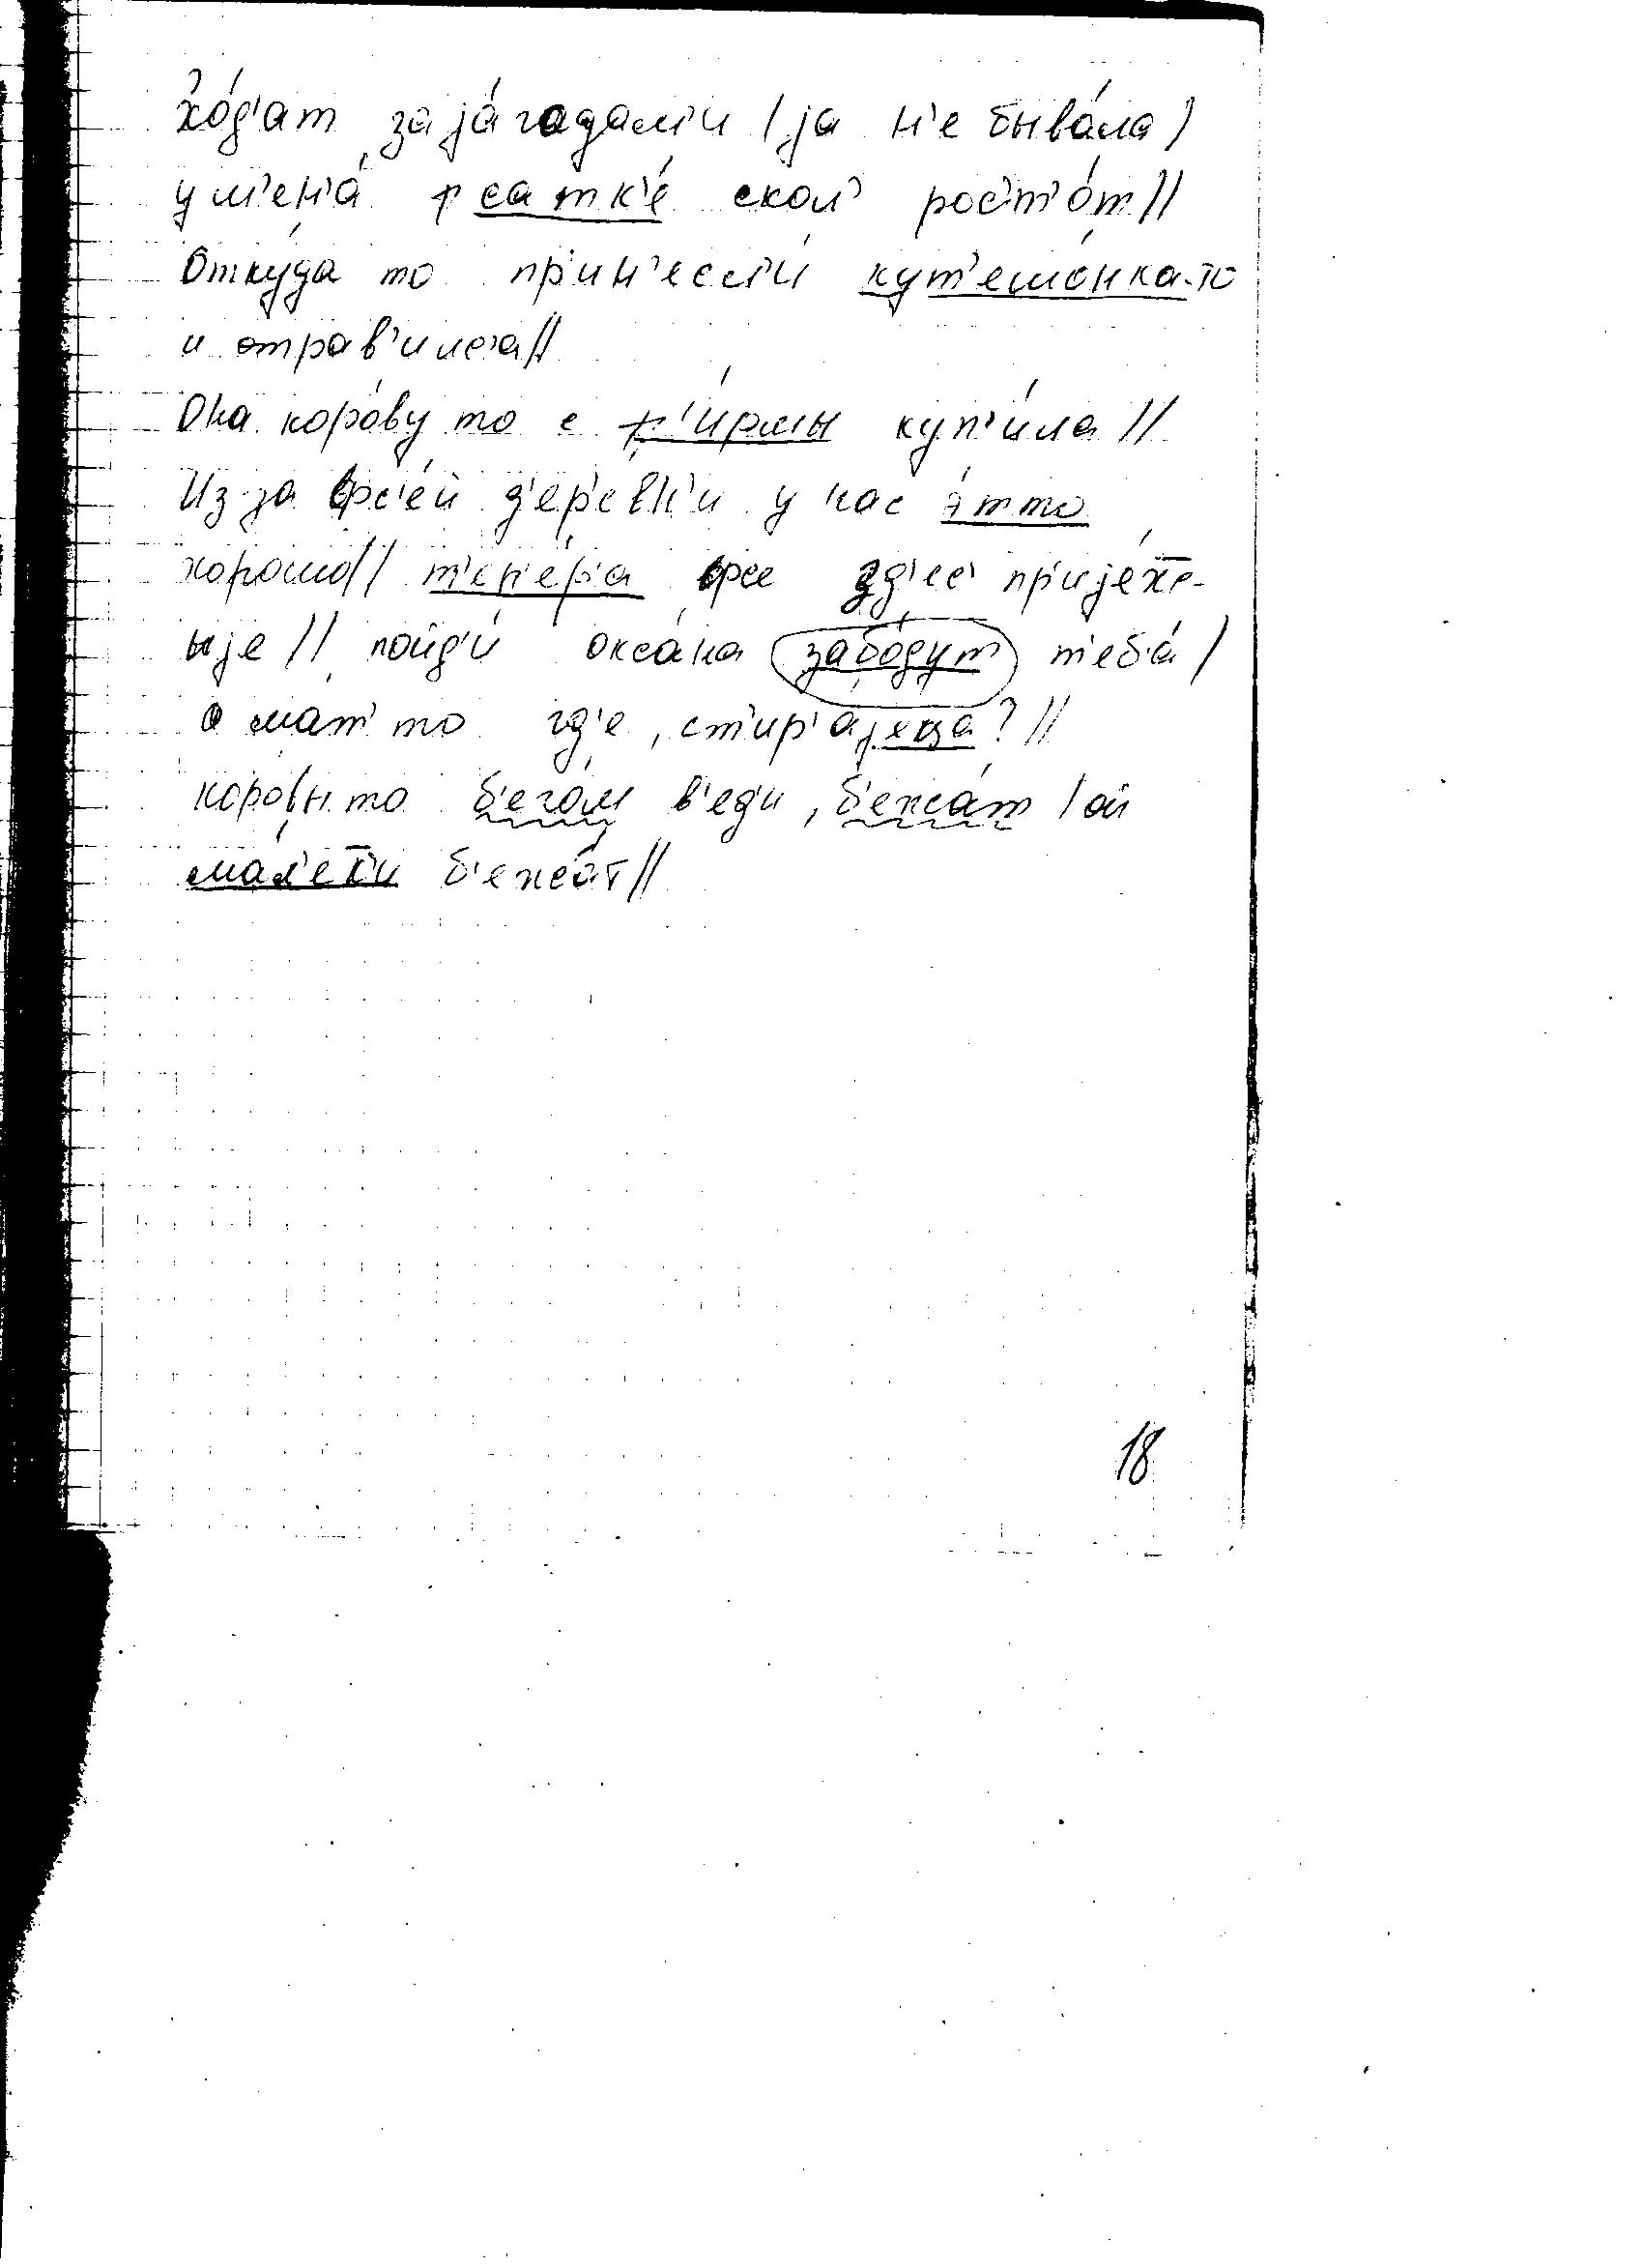 хо́д'ат за jа́гадам'и / jа н'е быва́ла /
у м'ен'а́ ф сатк'е́ скол' рос'т'о́т //
Отку́да то пр'ин'есл'и́ кут'ешо́нка-то
и отрав'илс'а //
Она коро́ву то с ф'и́рмы куп'и́ла //
Из-за фс'ей д'ер'евн'и у нас э́тто
хорошо // т'еп'е́р'а фсе зд'ес' пр'иjе́хе-
ыjе // пойд'и́ окса́на забо́дут т'еб'а́ /
а мат' то гд'е, ст'ир'аjеца? //
коровы то б'его́м в'ед'и, б'ежа́т / ой
мал'е́тк'и б'ежа́т //
18